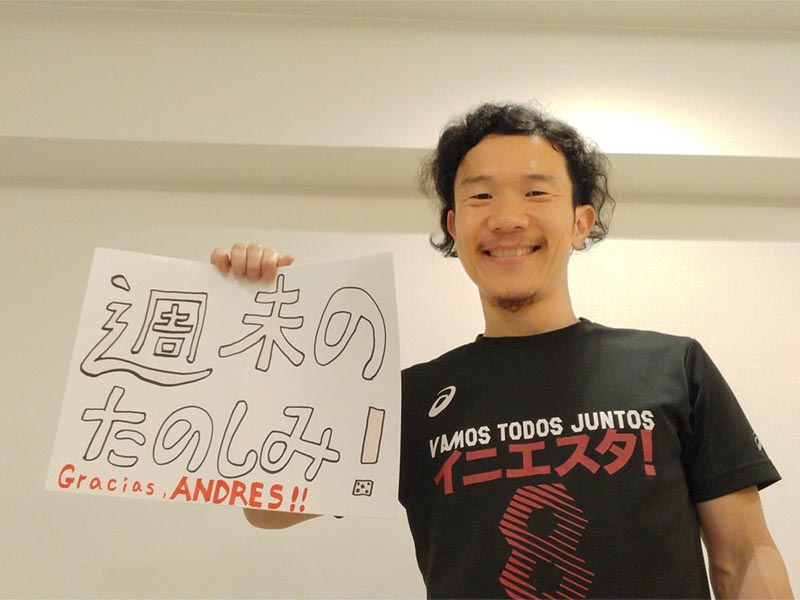 週末の
たのしみ!
Gracias, ANDRES!!
VAMOS TODOS JUNTOS
イニエスタ!
8